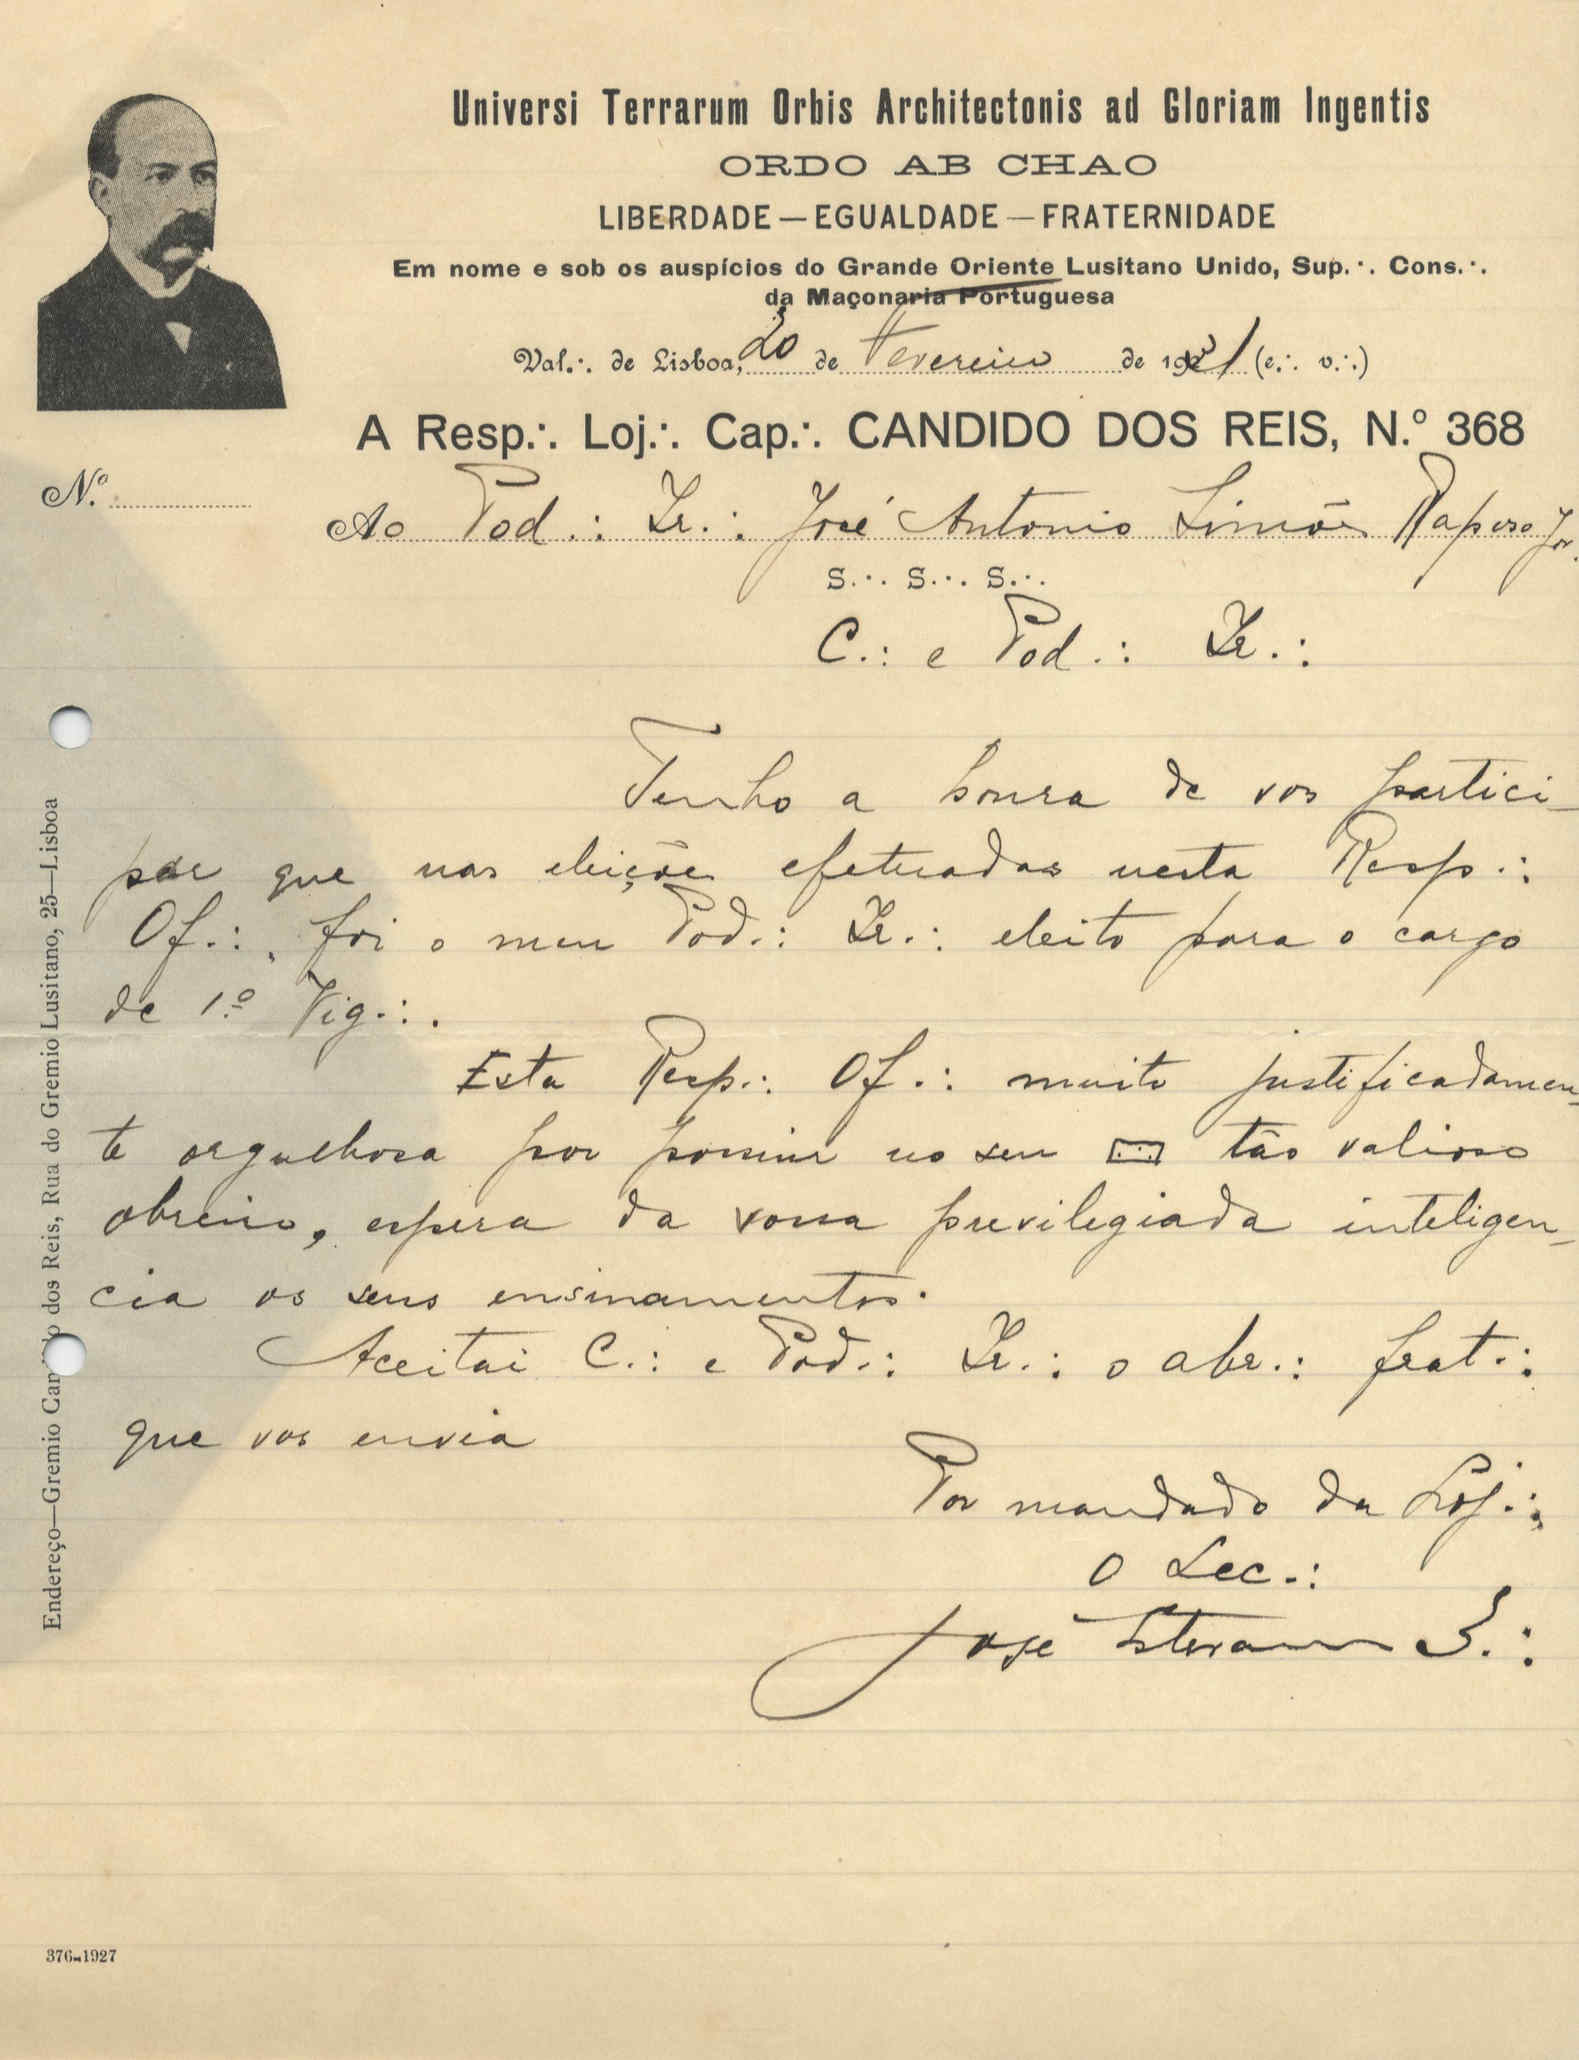 Universi Terrarum Orbis Architectonis ad Gloriam Ingentis
ORDO AB CHAO
LIBERDADE — EGUALDADE — FRATERNIDADE
Em nome e sob os auspícios do Grande Oriente Lusitano Unido, Sup.·. Cons.·.
da Maçonaria Portuguesa
Val.·. de Lisboa, 20 de Fevereiro de 1931 (e.·. v.·.)
A Resp.·. Loj.·. Cap.·. CANDIDO DOS REIS, N.º 368
N.º
Ao Pod.·. Ir.·. José Antonio Simões Raposo Jor.
S.·. S.·. S.·.
C.·. e Pod.·. Ir.·.
Tenho a honra de vos partici-
par que nas eleições efetuadas nesta Resp.·.
Of.·., foi o meu Pod.·. Ir.·. eleito para o cargo
de 1.º Vig.·..
Esta Resp.·. Of.·. muito justificadamen-
te orgulhosa por possuir no seu tão valioso
obreiro, espera da vossa previlegiada inteligen-
cia os seus ensinamentos.
Aceitai C.·. e Pod.·. Ir.·. o abr.·. frat.·.
que vos envia
Por mandado da Loj.·.,
O Sec.·.
José Estevam 3.·.
Endereço—Gremio Candido dos Reis, Rua do Gremio Lusitano, 25—Lisboa
376-1927